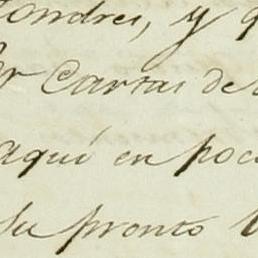 Londres, y q
er Cartas de
aquí en poc
su pronto